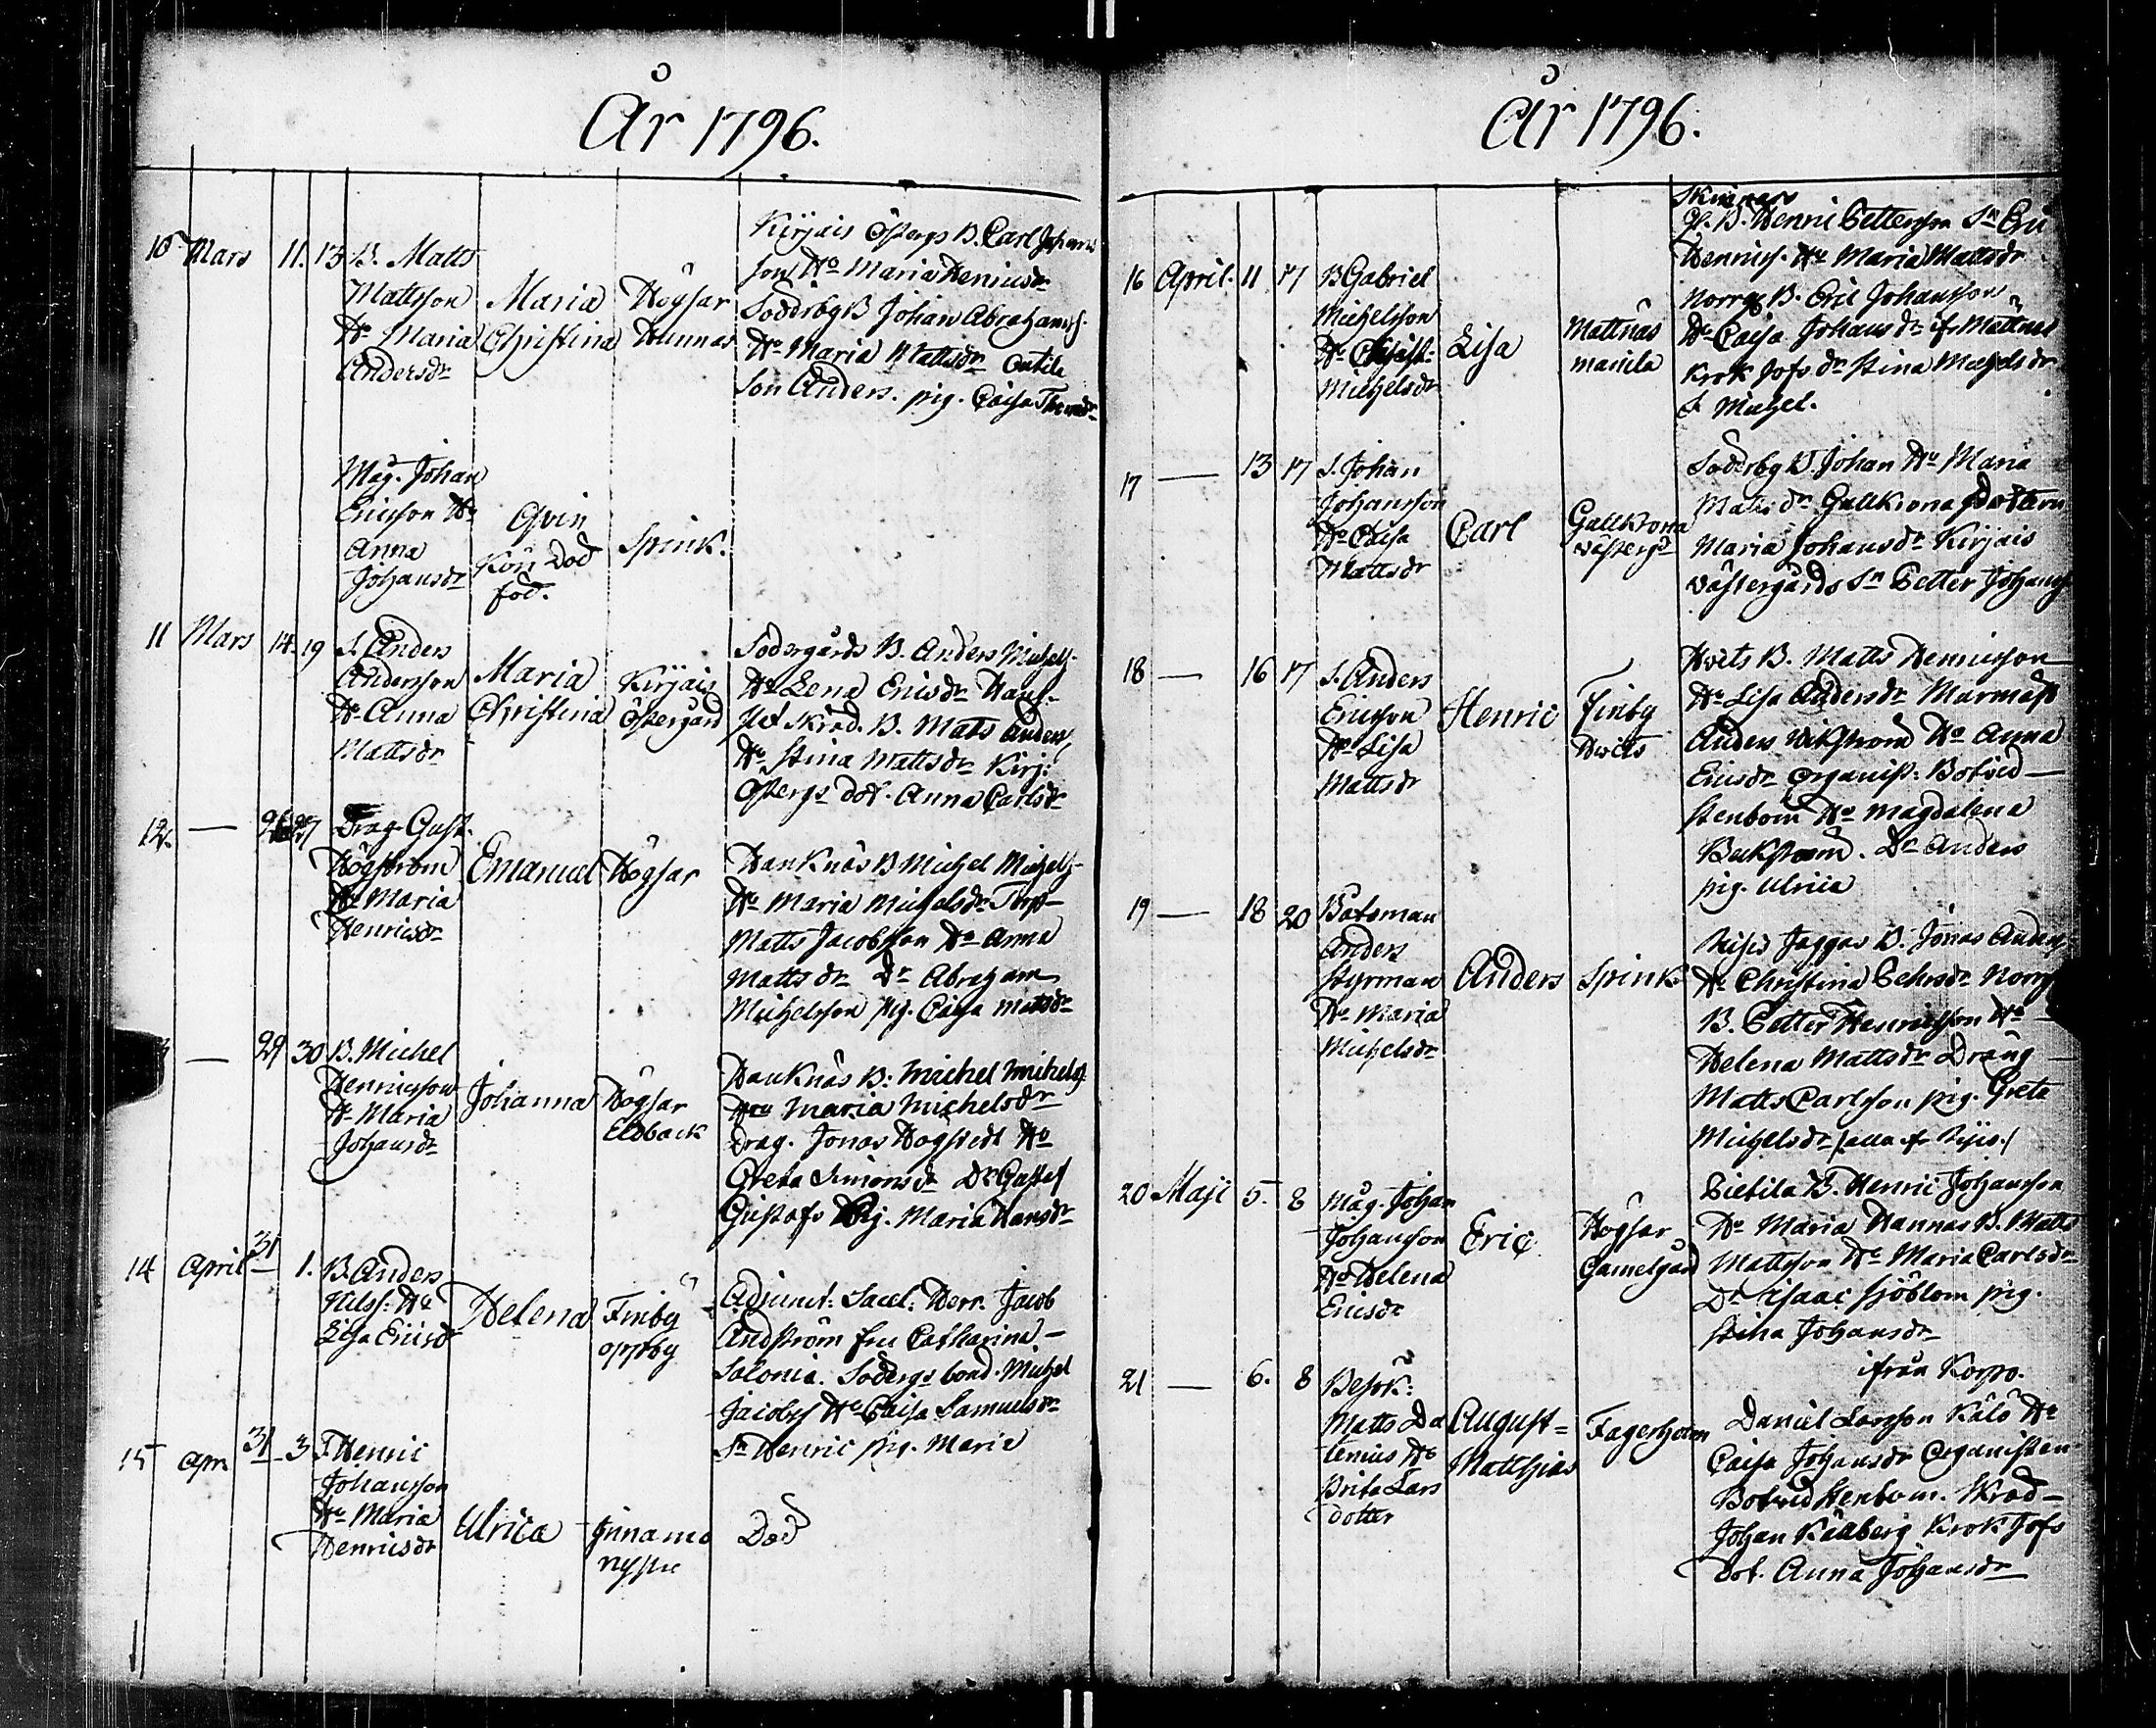 År 1796.
10 Mars 11. 13 B. Matts
Mattsson
Hu Maria
Andersdr
Maria
Christina
Högsar
Hannas
Kirjais Östergs B. Carl Johans
son Hu Maria Henricsdr
Söderbg B Johan Abrahamss.
Hu Maria Mattsdr
son Anders. pig. Caisa
Mag. Johan
Ericsson Hu
Anna
Johansdr
Qvin
Kön Död
föd.
Spink.
11 Mars 14. 19 S. Anders
Andersson
Hu Anna
Mattsdr
Maria
Christina
Kirjais
Östergård
Södergårds B. Anders Michels.
Hu Lena Ericsdr
Skräd. B. Mats Anderss
Hu Stina Mattsdr Kirj:
Östergs dot. Anna Carlsdr
12. — 27 Drag. Gust.
Högström
Hu Maria
Henricsdr
Emanuel
Högsar
Hanknäs B Michel Michels.
Hu Maria Michelsdr Torp
Matts Jacobsson Hu Anna
Matts dr Dr Abraham
Michelsson pig. Caisa Matsdr
— 29 30 B. Michel
Henricsson
Hu Maria
Johansdr
Johanna
Högsar
Eldback
Hanknäs B: Michel Michelss
Hru Maria Michelsdr
Drag. Jonas Högstedt Hu
Greta Simonsdr Dr Gustaf
Gustafs Pig. Maria Hansdr
14 April 31 1. B. Anders
Nilss: Hu
Lisa Ericsdr
Helena
Finby
oppby
Adjunct: Sacel: Herr. Jacob
Andström fru Catharina —
Salonia. Södergs bond. Michel
Jacobss Hu Caisa Samuelsdr
Sn Henric pig. Maria
15 Apr. 31 3 T. Henric
Johansson
Hu Maria
Henricsdr
Ulrica
Död
År 1796.
16 April. 11 17 B Gabriel
Michelsson
Hu Christ:
Michelsdr
Lisa
Mattnäs
B. Henric Pettersson Sn Eric
Henrics. Hu Maria Mattsdr
Norrg B. Eric Johansson
Hu Caisa Johansdr fr Mattnäs
Krok Jofs dr Stina Michels dr
S. Michel.
17 — 13 17 S. Johan
Johansson
Hu Caisa
Mattsdr
Carl
Gallkrona
västergd
Söderbg B Johan Hu Maria
Mats dr Gallkrona dottern
Maria Johansdr Kirjais
västergårds Sn Petter Johanss
18 — 16 17 S. Anders
Ericsson
Hu Lisa
Mattsdr
Henric
Finby
Hvits
Hvits B. Matts Henricsson
Hu Lisa Andersdr Murmäst
Anders Wikström Hu Anna
Ericsdr Organist: Botvid —
Stenbom Hu Magdalena
Beckström. Dr Anders
pig. Ulrica
19 — 18 20 Båtsman
Anders
Styrman
Hu Maria
Michelsdr
Anders
Spink
Risis Jaggas B. Jonas Anders
Hu Christina Pehrsdr Norrg
B. Petter Henricsson Hu
Helena Mattsdr Dräng —
Matts Carlsson pig. Greta
Michelsdr (alla fr Risis.)
20 Maji 5. 8 Måg. Johan
Johansson
Hu Helena
Ericsdr
Eric
Högsar
Gamelgård
Pietila B. Henric Johansson
Hu Maria Hannas B. Matts
Mattsson Hu Maria Carlsdr
Dr Isaac Sjöblom pig.
Stina Johansdr
21 — 6. 8 Besök:
Matts Da
lenius Hu
Brita Lars
dotter
August=
Matthias
Fagerholm
ifrån Korpo.
Daniel Larsson Kälö Hu
Caisa Johansdr Organisten
Botvid Stenbom. Skräd —
Johan Kállberg Krok Jofs
Dot. Anna Johansdr